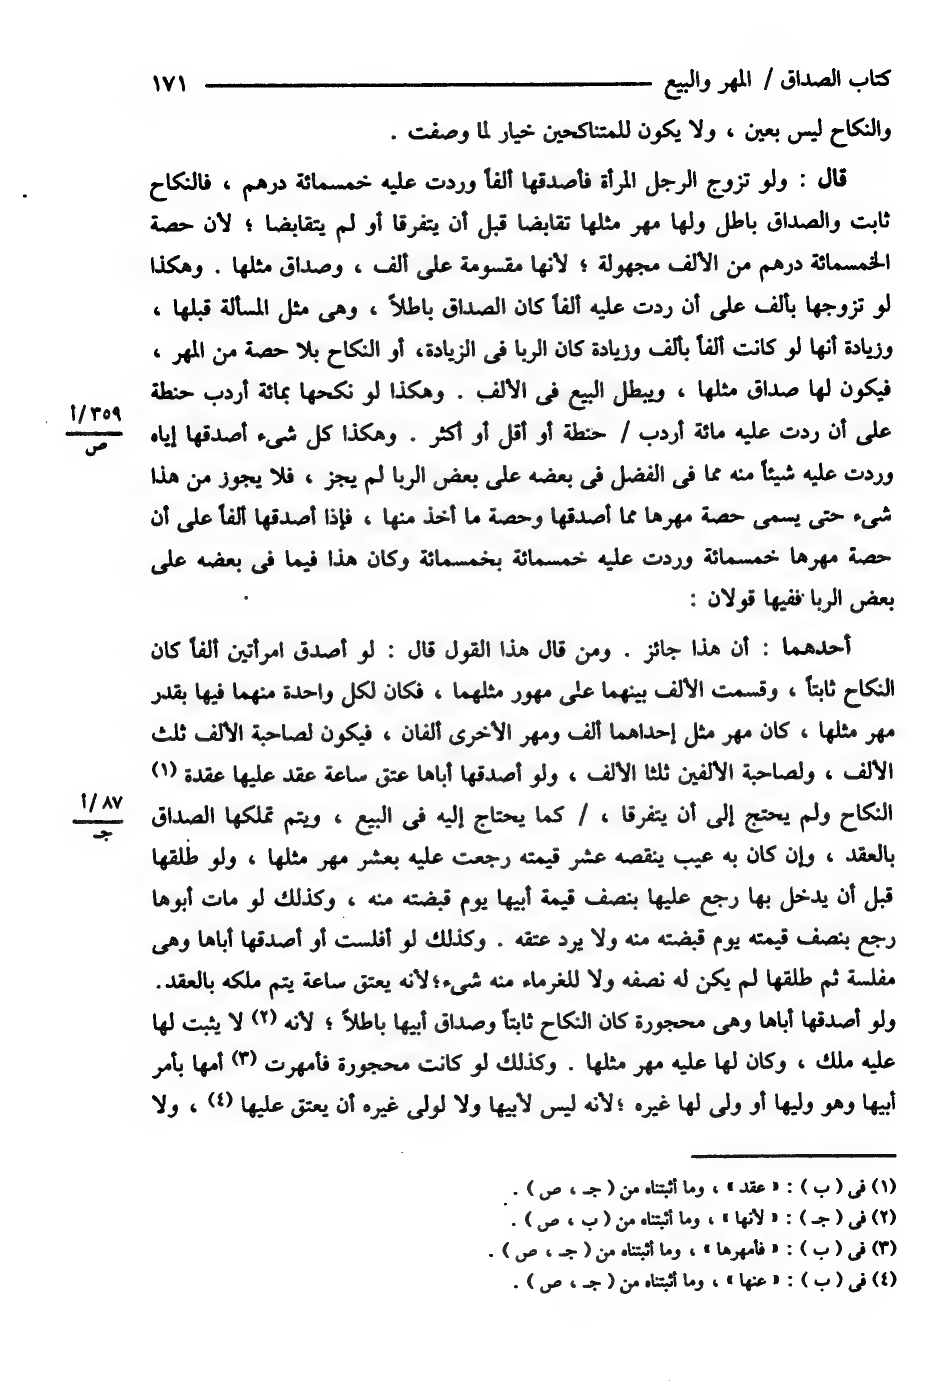 كتاب الصداق / المهر والبيع ـــــــــ ١٧١
والنكاح ليس بعين ، ولا يكون للمتناكحين خيار لما وصفت .
قال : ولو تزوج الرجل المرأة فأصدقها ألفاً وردت عليه خمسمائة درهم ، فالنكاح
ثابت والصداق باطل ولها مهر مثلها تقابضا قبل أن يتفرقا أو لم يتقابضا ؛ لأن حصة
الخمسمائة درهم من الألف مجهولة ؛ لأنها مقسومة على ألف ، وصداق مثلها . وهكذا
لو تزوجها بألف على أن ردت عليه ألفاً كان الصداق باطلاً ، وهى مثل المسألة قبلها ،
وزيادة أنها لو كانت ألفاً بألف وزيادة كان الربا فى الزيادة، أو النكاح بلا حصة من المهر ،
فيكون لها صداق مثلها ، ويبطل البيع فى الألف . وهكذا لو نكحها بمائة أردب حنطة
على أن ردت عليه مائة أردب / حنطة أو أقل أو أكثر . وهكذا كل شىء أصدقها إياه
٣٥٩/أ
ص
وردت عليه شيئاً منه مما فى الفضل فى بعضه على بعض الربا لم يجز ، فلا يجوز من هذا
شىء حتى يسمى حصة مهرها مما أصدقها وحصة ما أخذ منها ، فإذا أصدقها ألفاً على أن
حصة مهرها خمسمائة وردت عليه خمسمائة بخمسمائة وكان هذا فيما فى بعضه على
بعض الربا ففيها قولان :
أحدهما : أن هذا جائز . ومن قال هذا القول قال : لو أصدق امرأتين ألفاً كان
النكاح ثابتاً ، وقسمت الألف بينهما على مهور مثلهما ، فكان لكل واحدة منهما فيها بقدر
مهر مثلها ، كان مهر مثل إحداهما ألف ومهر الأخرى ألفان ، فيكون لصاحبة الألف ثلث
الألف ، ولصاحبة الألفين ثلثا الألف ، ولو أصدقها أباها عتق ساعة عقد عليها عقدة (١)
النكاح ولم يحتج إلى أن يتفرقا ، / كما يحتاج إليه فى البيع ، ويتم تملكها الصداق
٨٧/أ
جـ
بالعقد ، وإن كان به عيب ينقصه عشر قيمته رجعت عليه بعشر مهر مثلها ، ولو طلقها
قبل أن يدخل بها رجع عليها بنصف قيمة أبيها يوم قبضته منه ، وكذلك لو مات أبوها
رجع بنصف قيمته يوم قبضته منه ولا يرد عتقه . وكذلك لو أفلست أو أصدقها أباها وهى
مفلسة ثم طلقها لم يكن له نصفه ولا للغرماء منه شىء؛لأنه يعتق ساعة يتم ملكه بالعقد.
ولو أصدقها أباها وهى محجورة كان النكاح ثابتاً وصداق أبيها باطلاً ؛ لأنه (٢) لا يثبت لها
عليه ملك ، وكان لها عليه مهر مثلها . وكذلك لو كانت محجورة فأمهرت (٣) أمها بأمر
أبيها وهو وليها أو ولى لها غيره ؛لأنه ليس لأبيها ولا لولى غيره أن يعتق عليها (٤) ، ولا
(١) فى ( ب ) : « عقد » ، وما أثبتناه من ( جـ ، ص ) .
(٢) فى ( جـ ) : « لأنها » ، وما أثبتناه من ( ب ، ص ) .
(٣) فى ( ب ) : « فأمهرها » ، وما أثبتناه من ( جـ ، ص ) .
(٤) فى ( ب ) : « عنها » ، وما أثبتناه من ( جـ ، ص ) .